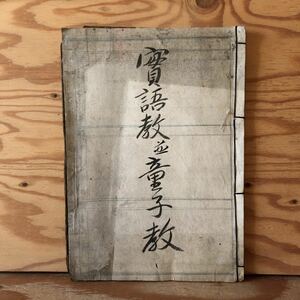 實語教並童子教